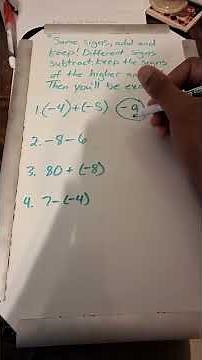 Same signs, add and
keep! Different signs
subtract, keep the signs
of the higher
Then you'll be
1. (-4)+(-5) -9
2. -8-6
3. 80 + (-8)
4. 7-(-4)